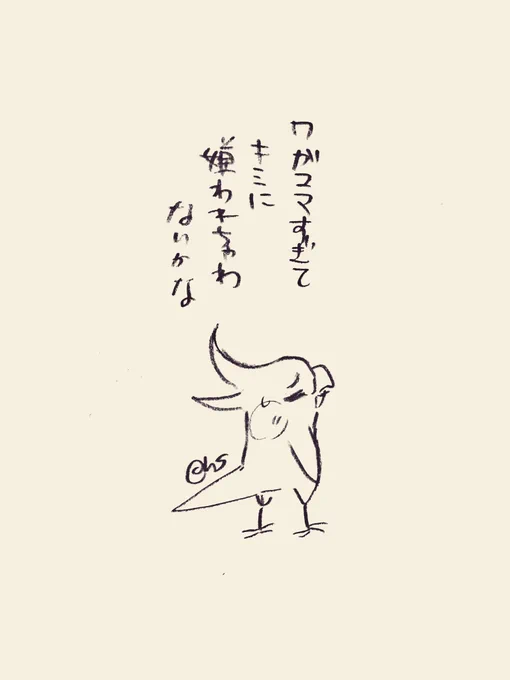 ワガママすぎて
キミに
嫌われちゃわ
ないかな
@hs